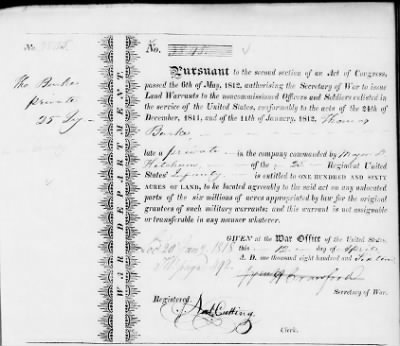 No.
No.
Tho Burke
private
25 Inf
WAR DEPARTMENT.
Pursuant to the second section of an Act of Congress,
passed the 6th of May, 1812, authorising the Secretary of War to issue
Land Warrants to the noncommissioned Officers and Soldiers enlisted in
the service of the United States, conformably to the acts of the 24th of
December, 1811, and of the 11th of January, 1812, Thomas
Burke
late a private in the company commanded by Major
of the 25 Regiment of United
States' Infantry is entitled to ONE HUNDRED AND SIXTY
ACRES OF LAND, to be located agreeably to the said act on any unlocated
parts of the six millions of acres appropriated by law for the original
grantees of such military warrants; and this warrant is not assignable
or transferable in any manner whatever.
GIVEN at the War Office of the United States,
this day of April
A. D. one thousand eight hundred and Sixteen
Wm H Crawford
Secretary of War.
Registered, Nat Cutting
Clerk.